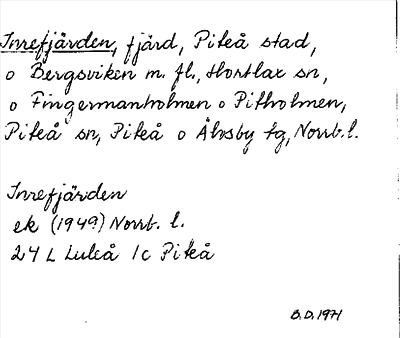 Inrefjärden, fjärd, Piteå stad,
o Bergsviken m. fl., Hortlax sn,
o Fingermanholmen o Pitholmen,
Piteå sn, Piteå o Älvsby tg, Norrb. l.
Inrefjärden
ek (1949) Norrb. l.
24 L Luleå 1c Piteå
B.D. 1971